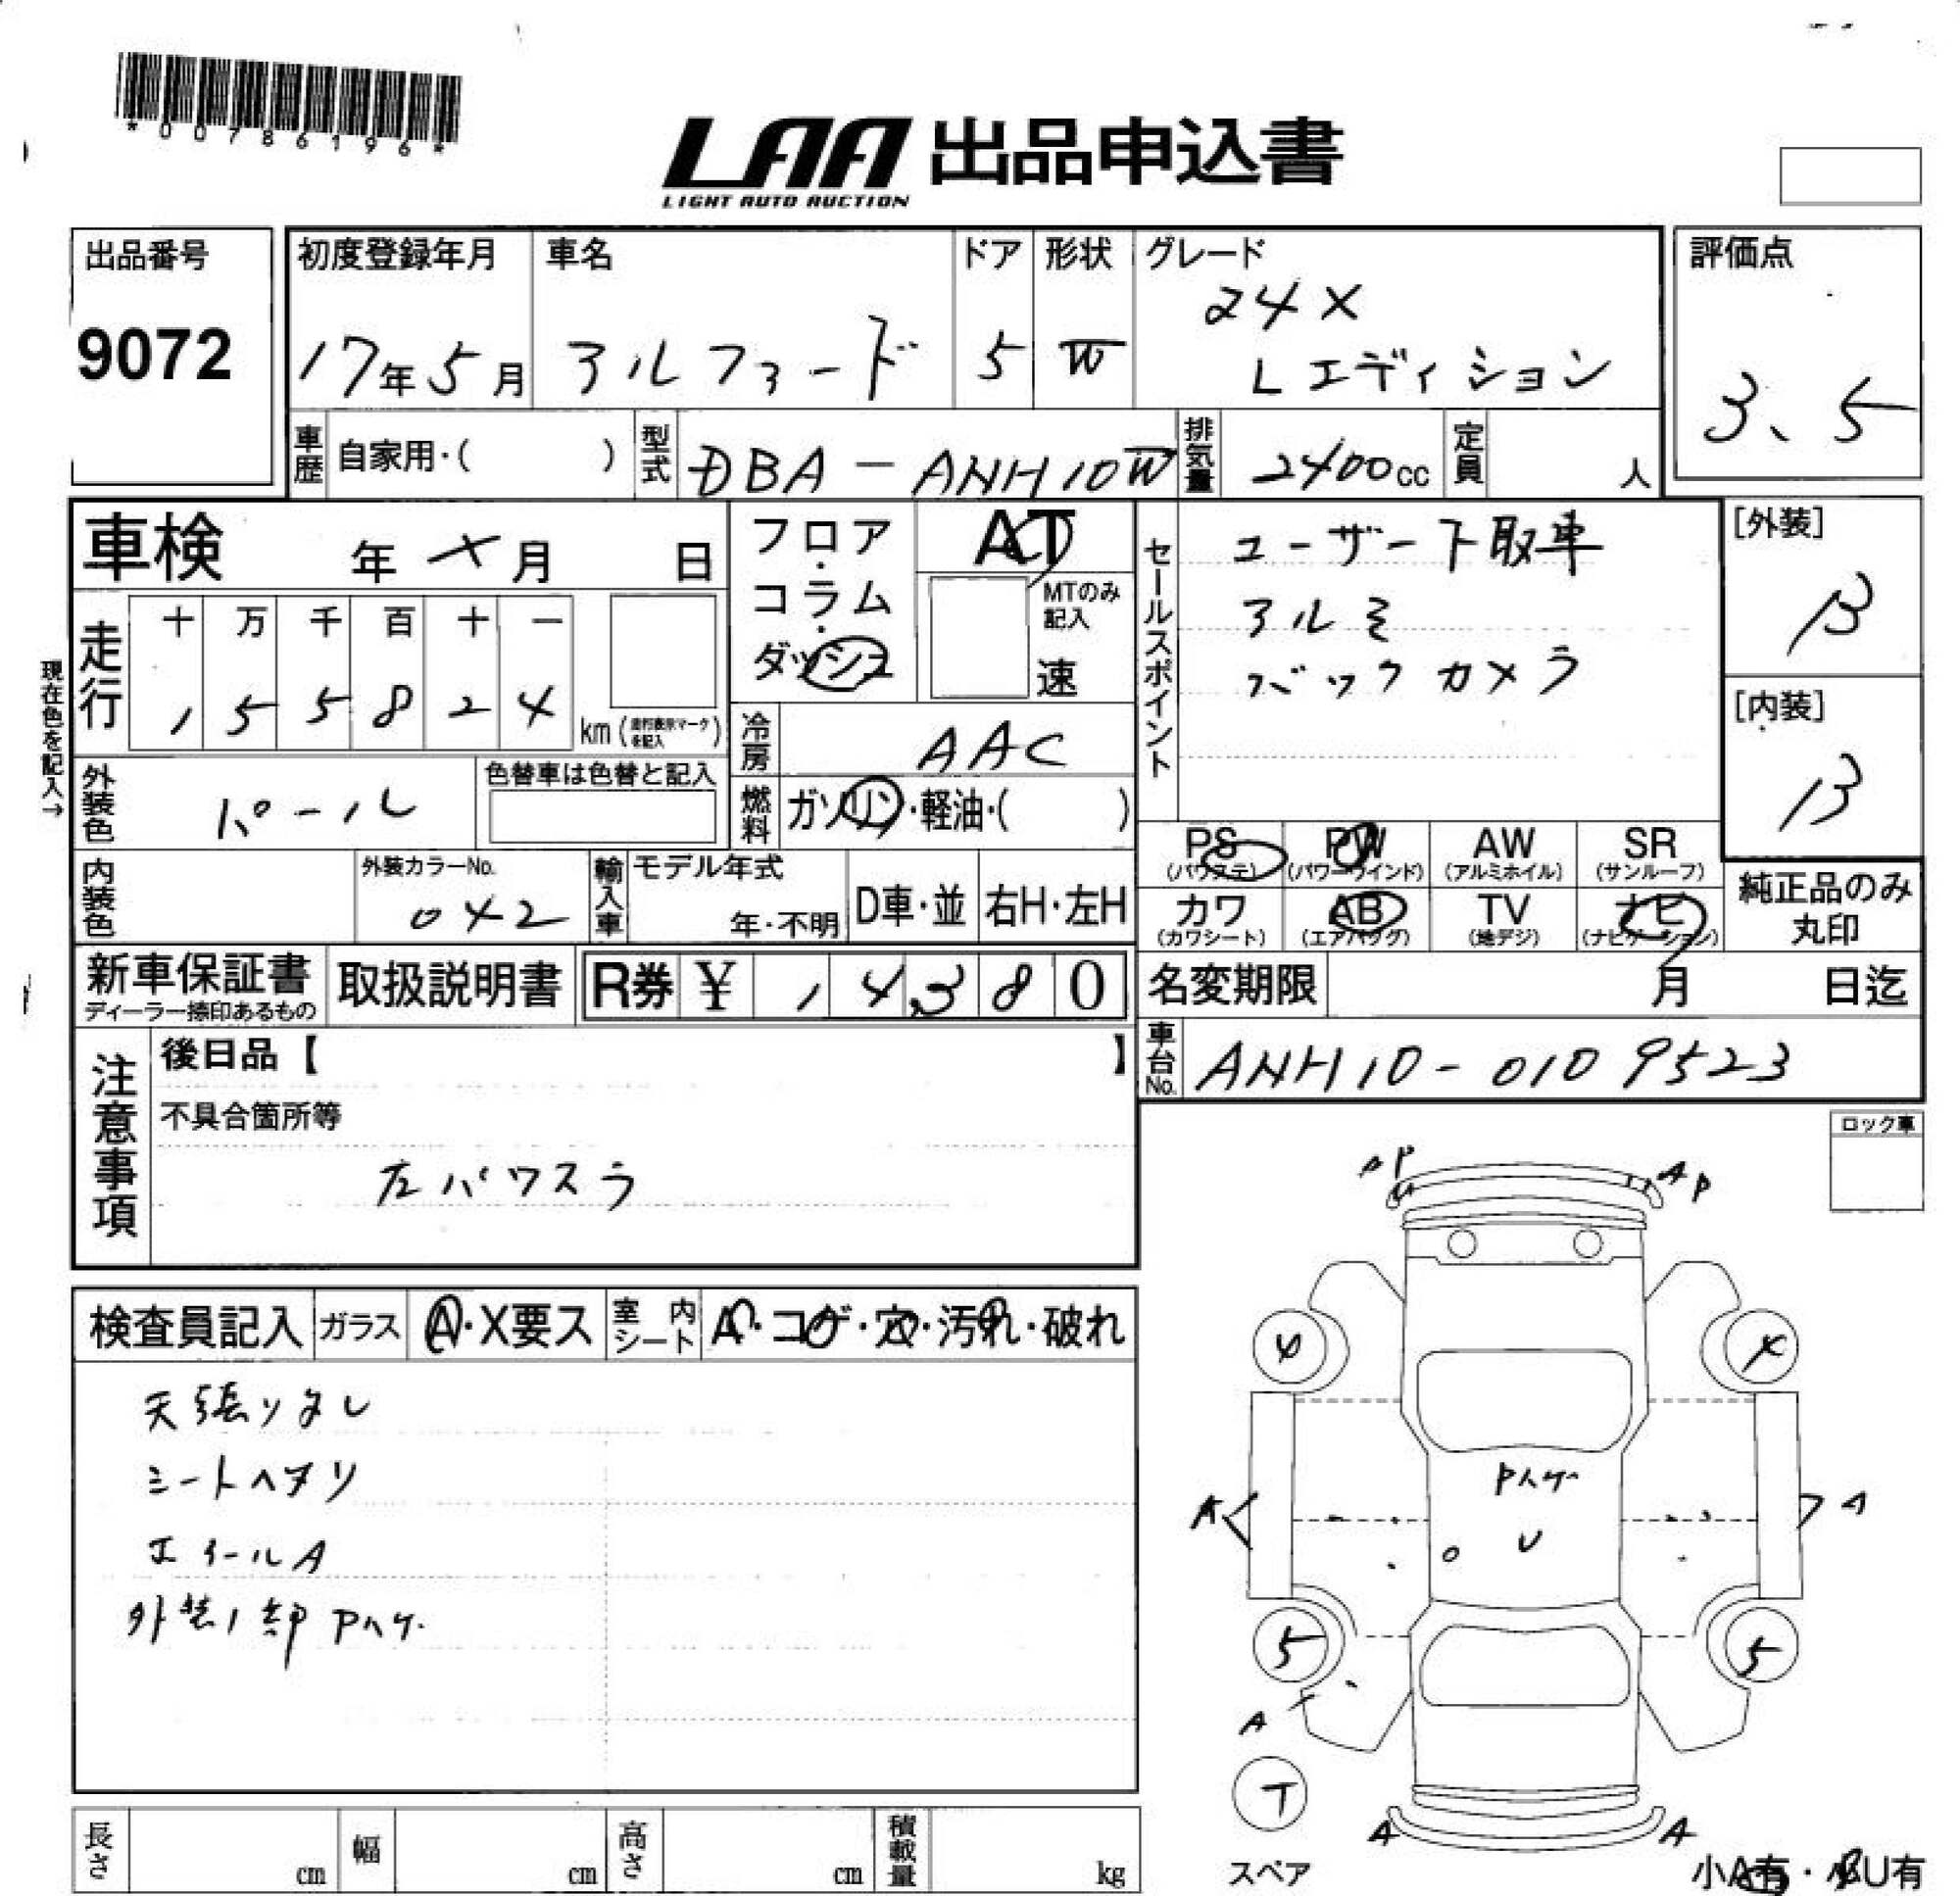 *00786196*
LAA 出品申込書
LIGHT AUTO AUCTION
出品番号
9072
初度登録年月
17年5月
車名
アルファード
ドア
5
形状
W
グレード
24X
Lエディション
評価点
3、5
車歴 自家用・( )
型式 DBA-ANH10W
排気量 2400cc
定員 人
車検 年 X 月 日
フロア・コラム・ダッシュ
AT
MTのみ記入
速
走行
十 万 千 百 十 一
1 5 5 8 2 4
km (走行表示マークを記入)
現在色を記入→
冷房 AAC
燃料 ガソリン・軽油・( )
外装色 パール
色替車は色替と記入
内装色
外装カラーNo.
042
輸入車
モデル年式
年・不明
D車・並
右H・左H
セールスポイント
ユーザー下取車
アルミ
バックカメラ
[外装]
B
[内装]
B
PS (パワステ)
PW (パワーウインド)
AW (アルミホイル)
SR (サンルーフ)
カワ (カワシート)
AB (エアバッグ)
TV (地デジ)
ナビ (ナビゲーション)
純正品のみ丸印
新車保証書
ディーラー捺印あるもの
取扱説明書
R券 ¥ 1 4,3 8 0
名変期限 月 日迄
車台No. ANH10-0109523
注意事項
後日品【 】
不具合箇所等
左パワスラ
ロック車
検査員記入
ガラス A・X要ス
室内シート A・コゲ・穴・汚れ・破れ
天張りヨレ
シートヘタリ
ホイールA
外装1部Pハゲ
AP
AP
4
4
Pハゲ
U
A
A
5
5
A
T
スペア
A
A
小A有・小U有
長さ cm
幅 cm
高さ cm
積載量 kg